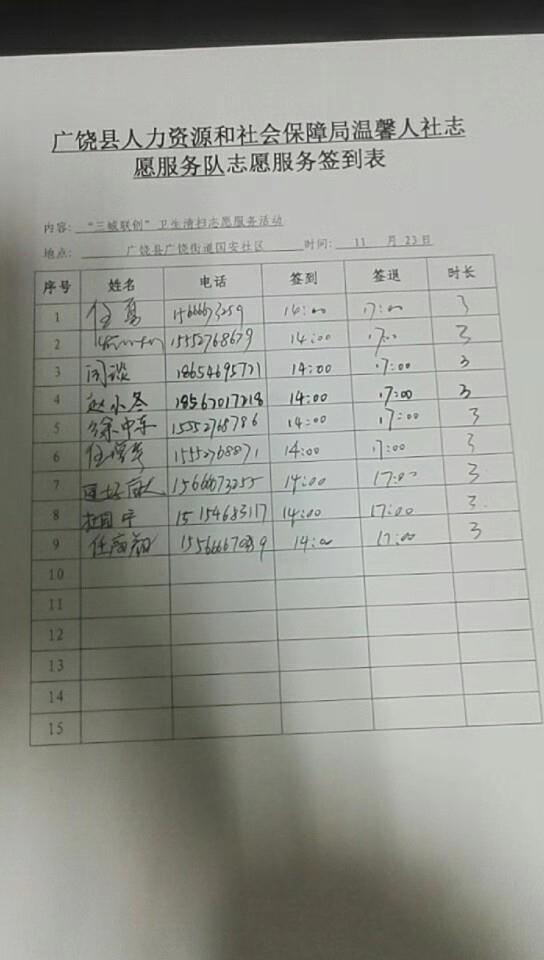 广饶县人力资源和社会保障局温馨人社志
愿服务队志愿服务签到表
内容： “三城联创”卫生清扫志愿服务活动
地点： 广饶县广饶街道国安社区 时间： 11 月 23日
序号 姓名 电话 签到 签退 时长
1 任勇 14:00 17:00 3
2 15552768679 14:00 17:00 3
3 闫谈 18654695721 14:00 17:00 3
4 赵小冬 18562017218 14:00 17:00 3
5 徐中华 15552768786 14:00 17:00 3
6 15552768871 14:00 17:00 3
7 15666673255 14:00 17:00 3
8 15154683117 14:00 17:00 3
9 14:00 17:00 3
10
11
12
13
14
15